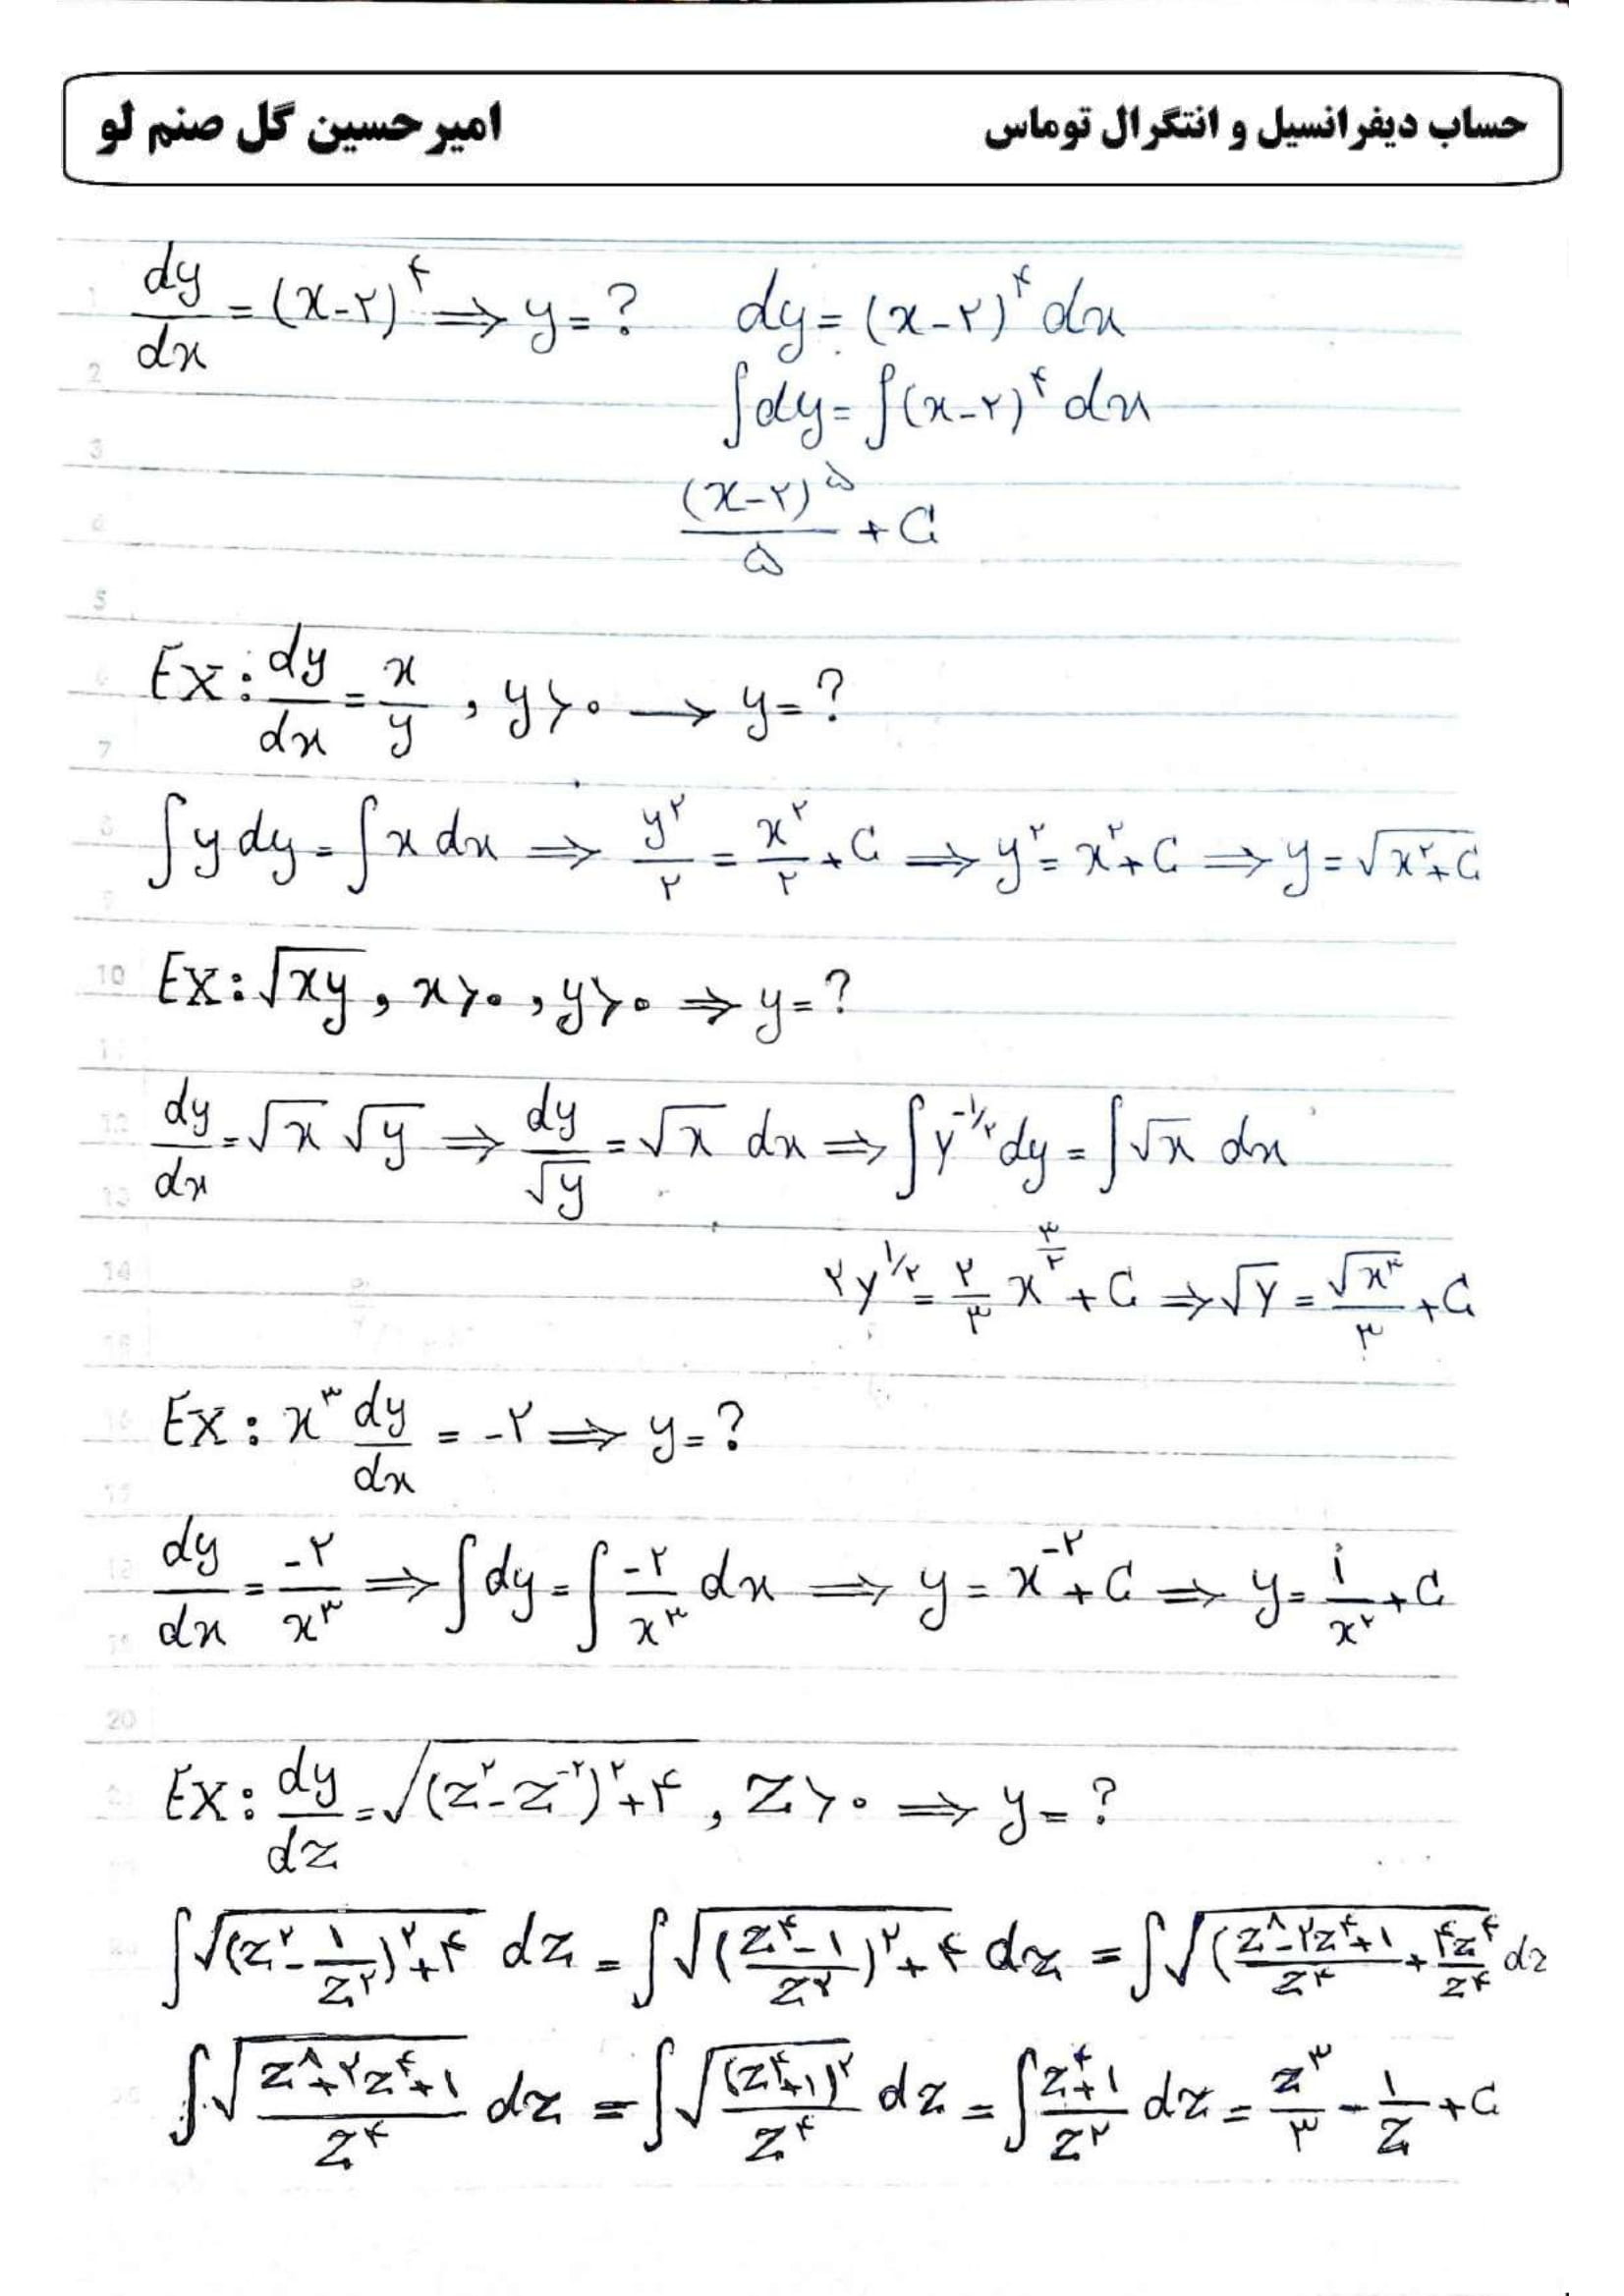 حساب دیفرانسیل و انتگرال توماس امیرحسین گل صنم لو
dy/dx = (x-۲)^۴ ⇒ y=? dy = (x-۲)^۴ dx
∫dy = ∫(x-۲)^۴ dx
(x-۲)^۵/۵ + C
EX: dy/dx = x/y , y>۰ → y=?
∫y dy = ∫x dx ⇒ y^۲/۲ = x^۲/۲ + C ⇒ y^۲ = x^۲ + C ⇒ y = √(x^۲ + C)
EX: √(xy) , x>۰ , y>۰ ⇒ y=?
dy/dx = √x √y ⇒ dy/√y = √x dx ⇒ ∫y^(-۱/۲) dy = ∫√x dx
۲y^(۱/۲) = ۲/۳ x^(۳/۲) + C ⇒ √y = √(x^۳)/۳ + C
EX: x^۳ dy/dx = -۲ ⇒ y=?
dy/dx = -۲/x^۳ ⇒ ∫dy = ∫-۲/x^۳ dx ⇒ y = x^(-۲) + C ⇒ y = ۱/x^۲ + C
EX: dy/dz = √((z^۲ - z^(-۲))^۲ + ۴) , z>۰ ⇒ y=?
∫√((z^۲ - ۱/z^۲)^۲ + ۴) dz = ∫√(((z^۴ - ۱)/z^۲)^۲ + ۴) dz = ∫√((z^۸ - ۲z^۴ + ۱)/z^۴ + ۴z^۴/z^۴) dz
∫√((z^۸ + ۲z^۴ + ۱)/z^۴) dz = ∫√((z^۴ + ۱)^۲/z^۴) dz = ∫(z^۴ + ۱)/z^۲ dz = z^۳/۳ - ۱/z + C